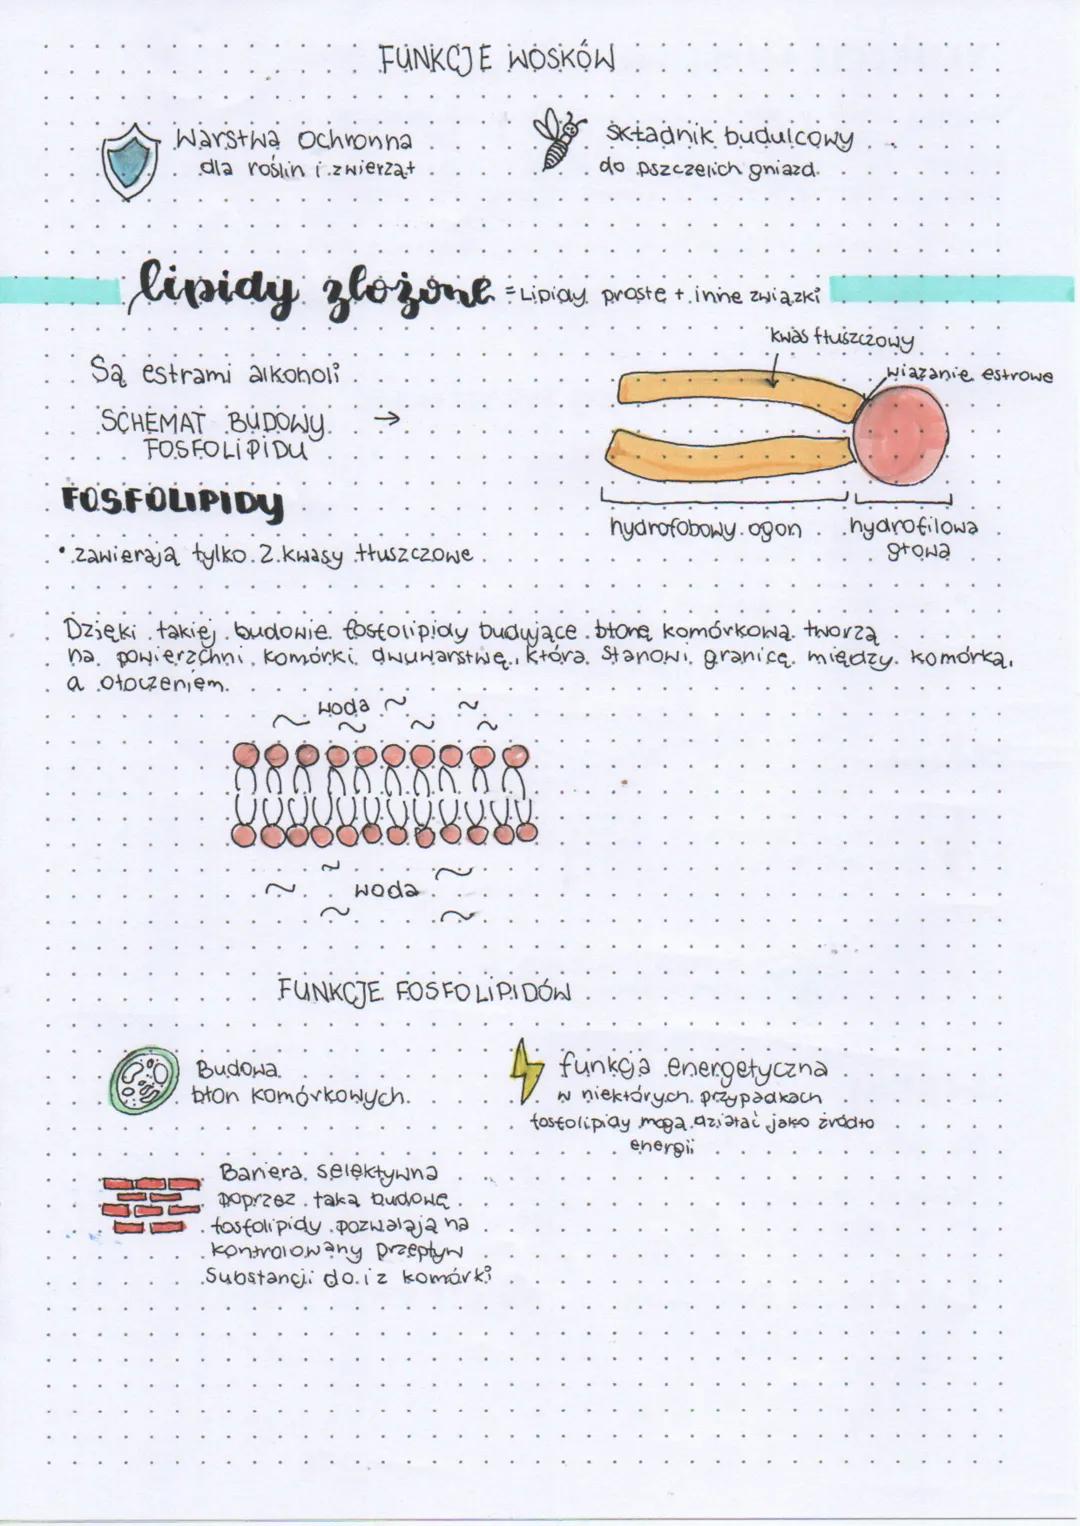 FUNKCJE WOSKÓW
Warstwa ochronna
dla roślin i zwierząt
składnik budulcowy
do pszczelich gniazd.
lipidy złożone = Lipidy proste + inne związki
kwas tłuszczowy
wiązanie estrowe
Są estrami alkoholi
SCHEMAT BUDOWY →
FOSFOLIPIDU
FOSFOLIPIDY
hydrofobowy ogon
hydrofilowa
głowa
• zawierają tylko 2 kwasy tłuszczowe
Dzięki takiej budowie fosfolipidy budujące błonę komórkową tworzą
na powierzchni komórki dwuwarstwę, która stanowi granicę między komórką,
a otoczeniem.
woda
woda
FUNKCJE FOSFOLIPIDÓW
Budowa
błon komórkowych.
funkcja energetyczna
w niektórych przypadkach
fosfolipidy mogą działać jako źródło
energii
Bariera selektywna
poprzez taką budowę
fosfolipidy pozwalają na
kontrolowany przepływ
substancji do i z komórki